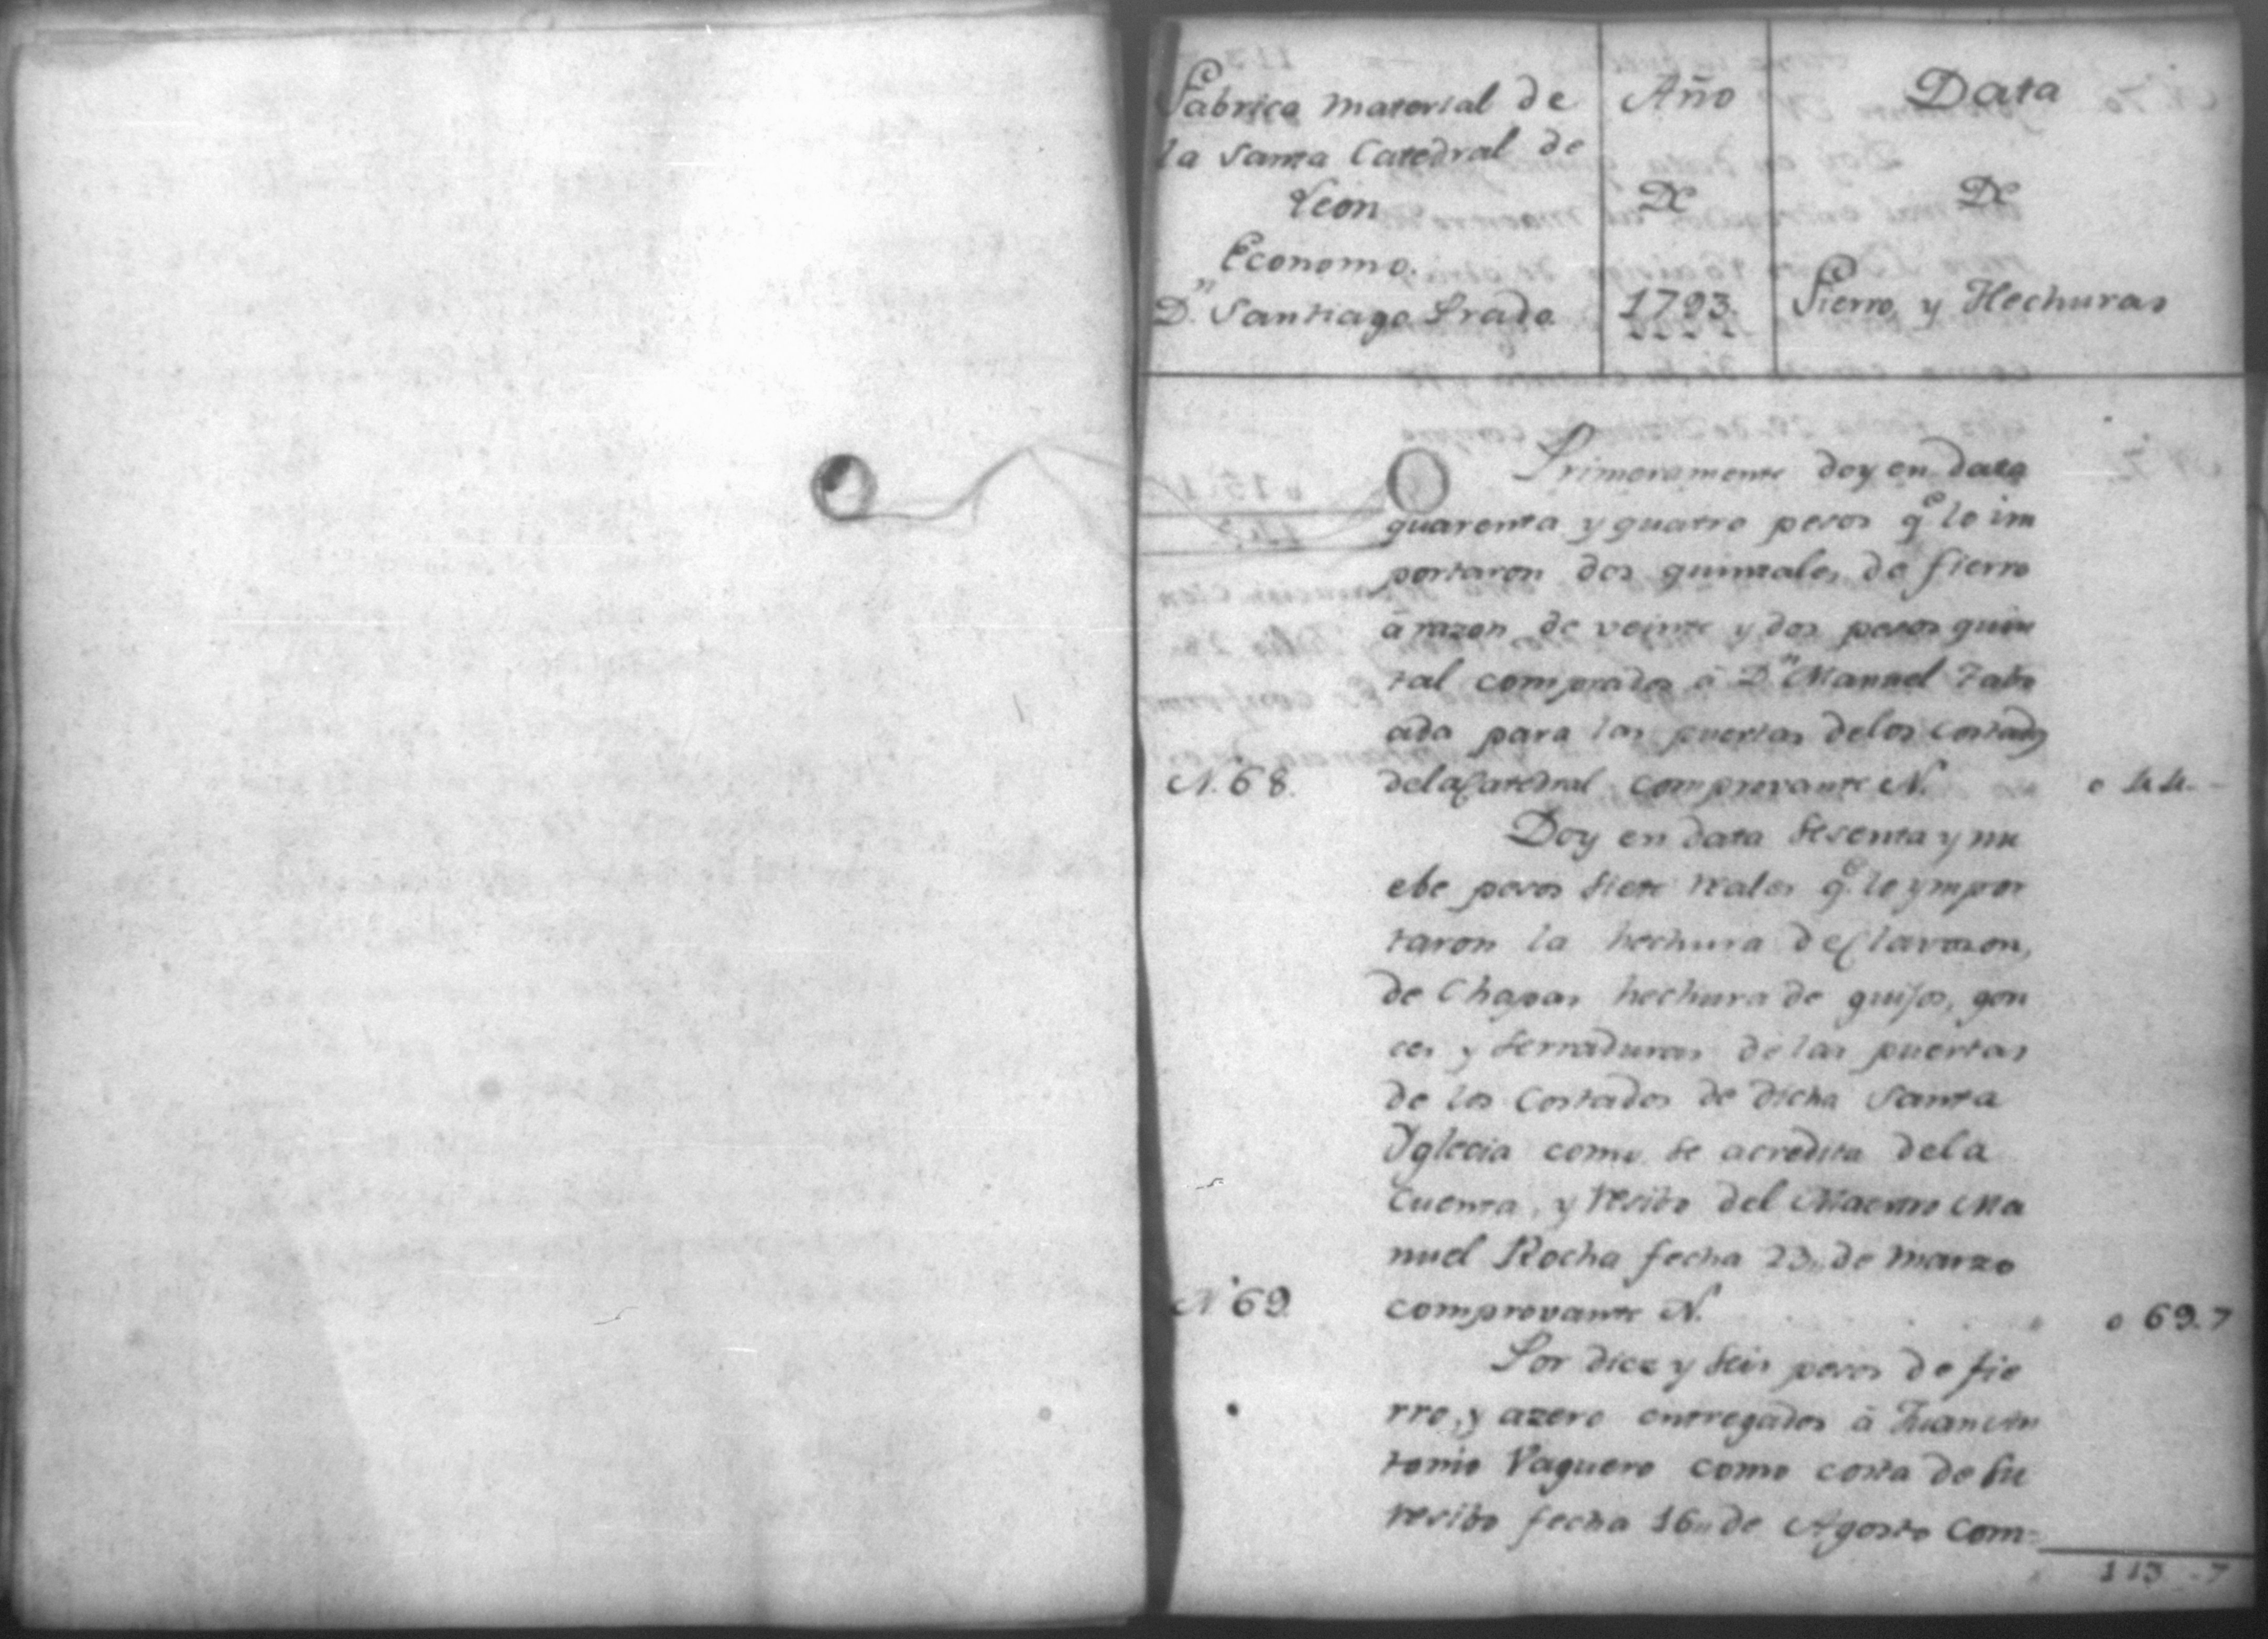 Fabrica material de
la Santa Catedral de
Leon
Economo.
Dn. Santiago Prado.
Año
De
1793.
Data
De
Fierro, y Hechuras
Primeramente doy en data
quarenta y quatro pesos qe. le im
portaron dos quintales de fierro
â razon de veinte y dos pesos quin
tal comprados â Dn Manuel Tabo
ada para las puertas delos costados
N. 68. dela Catedral comprovante N. o 44.
Doy en data sesenta y nu
ebe pesos siete reales qe. le ympor
taron la hechura de Clavason,
de Chapas hechura de quijos, gon
ces y serraduras de las puertas
de los Costados de dicha Santa
Yglecia como se acredita dela
Cuenta, y resibo del Maestro Ma
nuel Rocha fecha 23,, de marzo
N. 69. comprovante N. o 69.7
Por diez y seis pesos de fie
rro, y azero entregados â Juan An
tonio Vaquero como costa de su
resibo fecha 16,, de Agosto com=
113 - 7